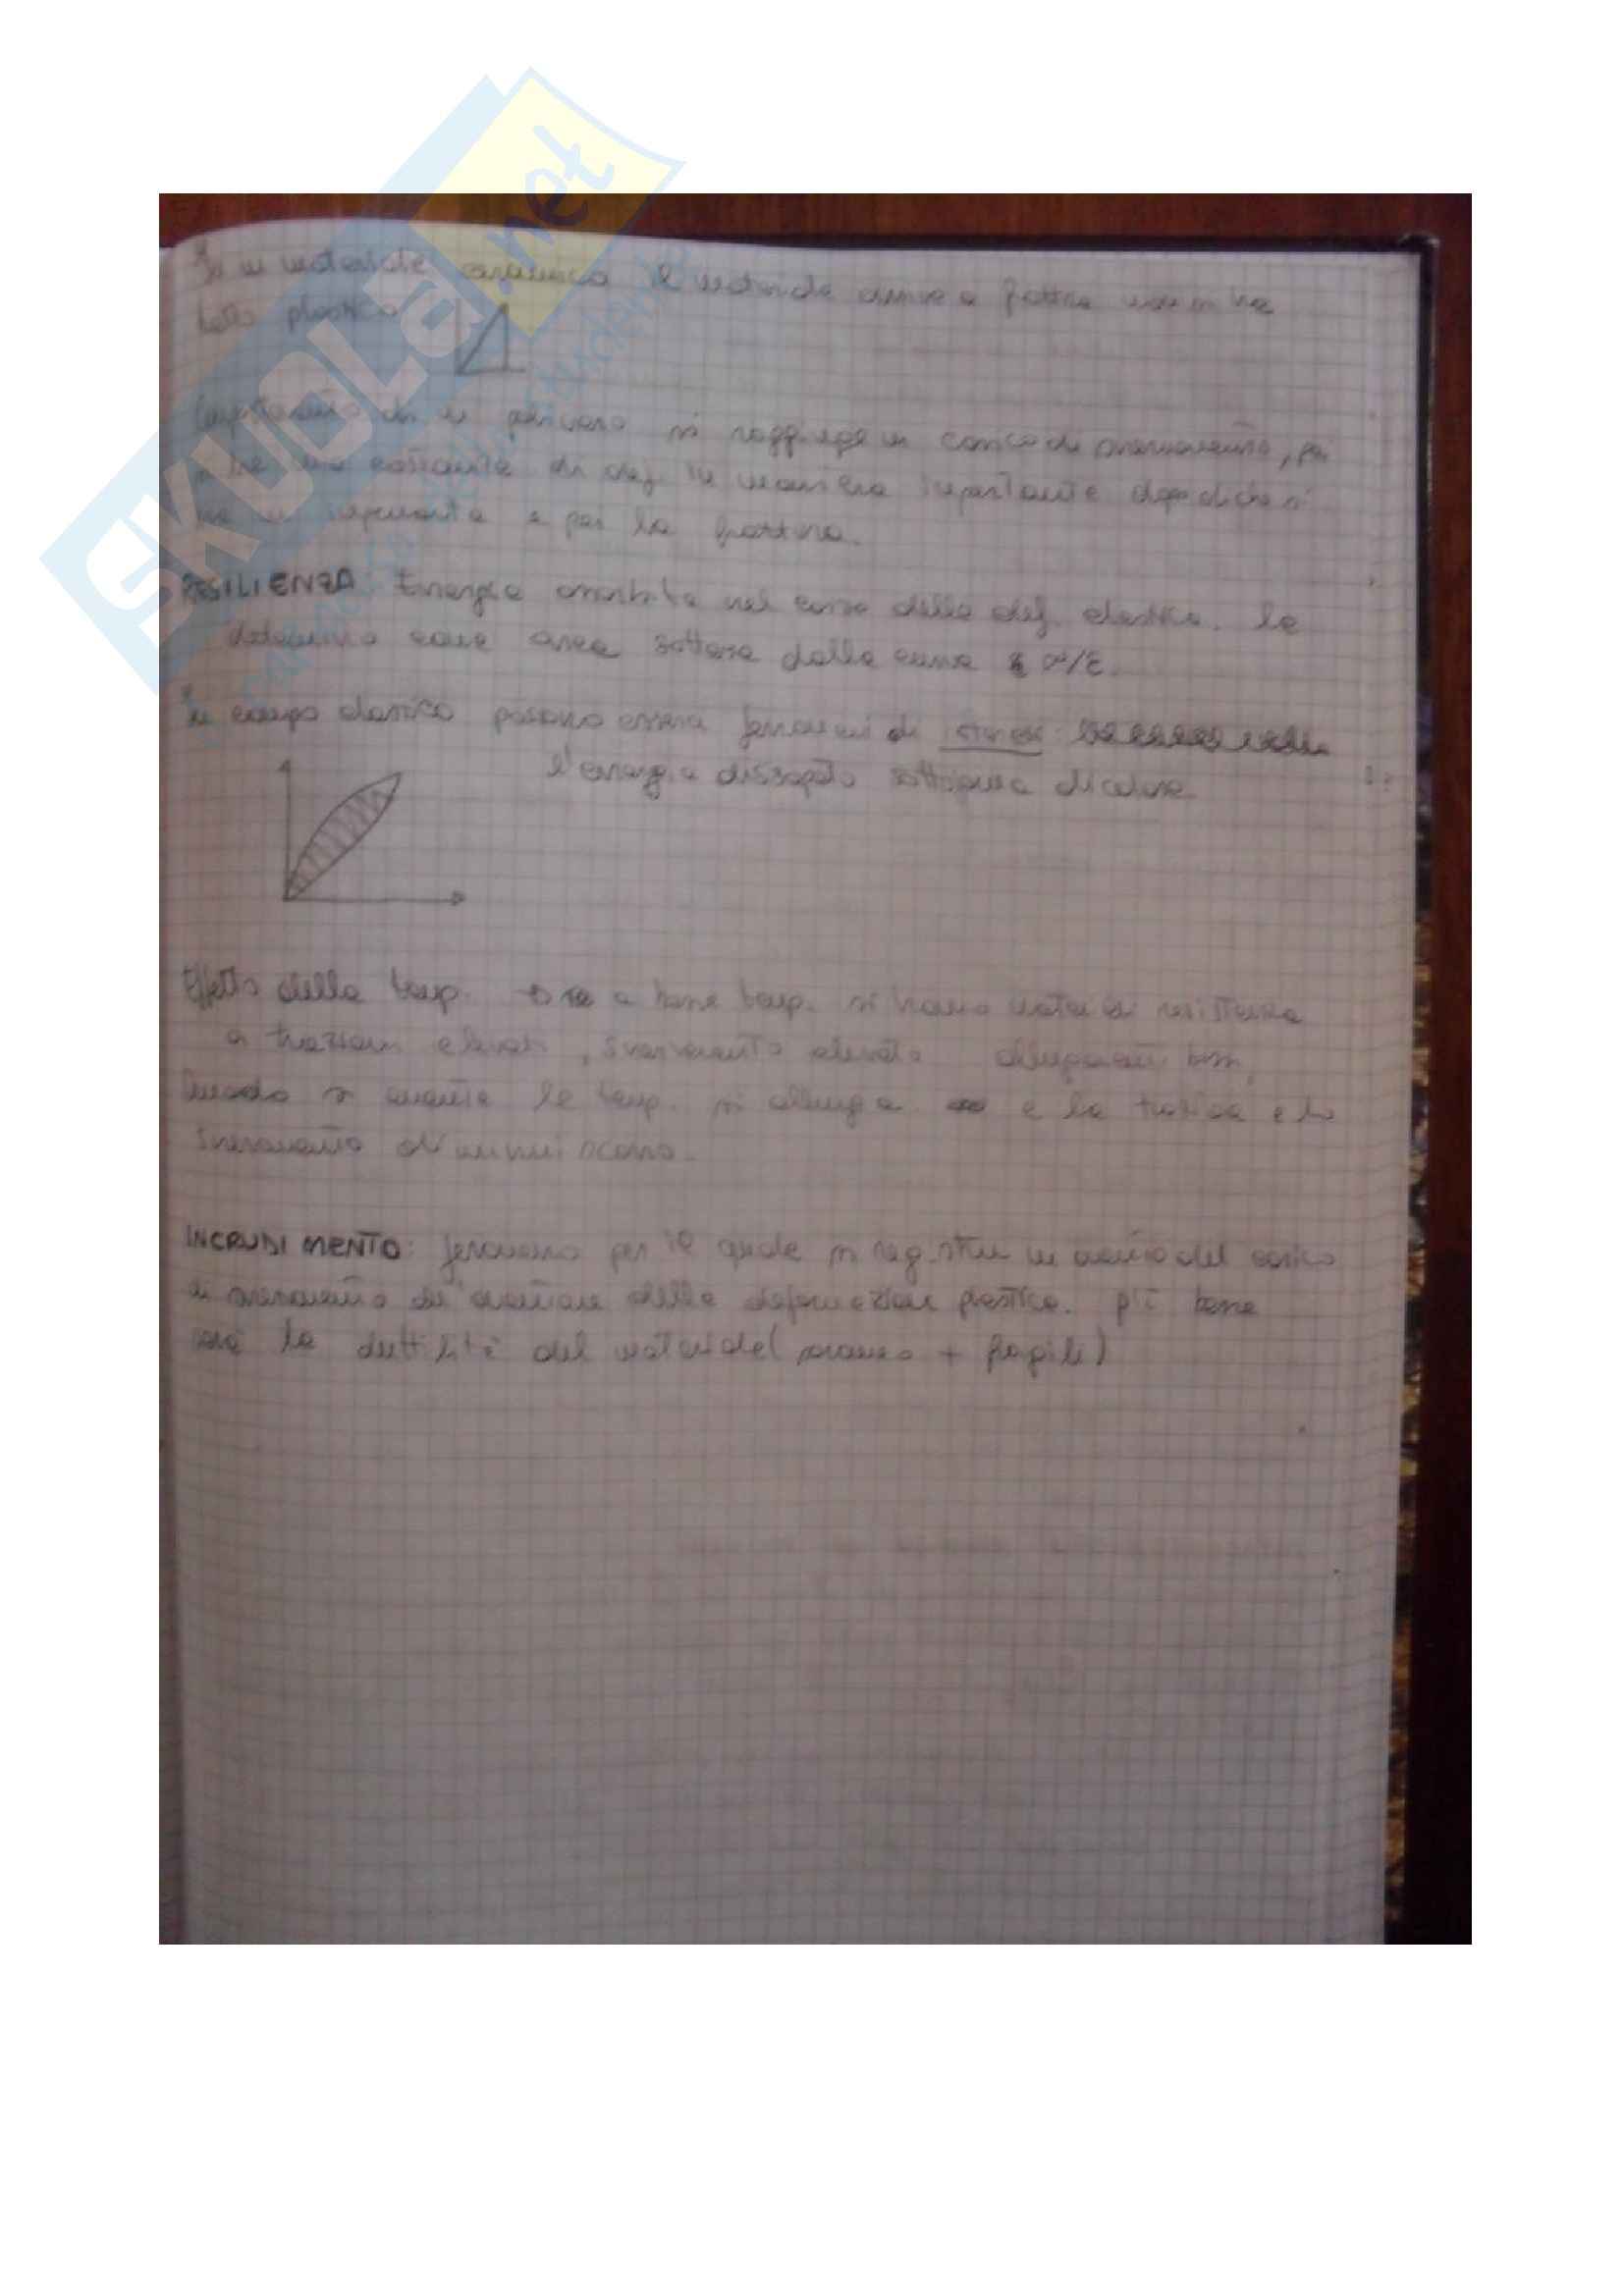 In un materiale ceramico il materiale arriva a frattura non si ha
tratto plastico
Comportamento di un polimero si raggiunge un carico di snervamento, poi
si ha una costante di def. in maniera importante dopodiché si
ha un incremento e poi la frattura.
RESILIENZA: Energia assorbita nel corso della def. elastica. la
determino come area sottesa dalla curva σ/ε.
In campo elastico possono esserci fenomeni di isteresi:
l'energia dissipata sottoforma di calore
Effetto della temp. → a basse temp. si hanno valori di resistenza
a trazioni elevati, snervamento elevato allungamenti bassi,
Quando si aumenta la temp. si allunga e la trazione e lo
snervamento diminuiscono.
INCRUDIMENTO: fenomeno per il quale si registra un aumento del carico
di snervamento all'aumentare della deformazione plastica. più bassa
sarà la duttilità del materiale (saranno + fragili)
SKUOLA.net